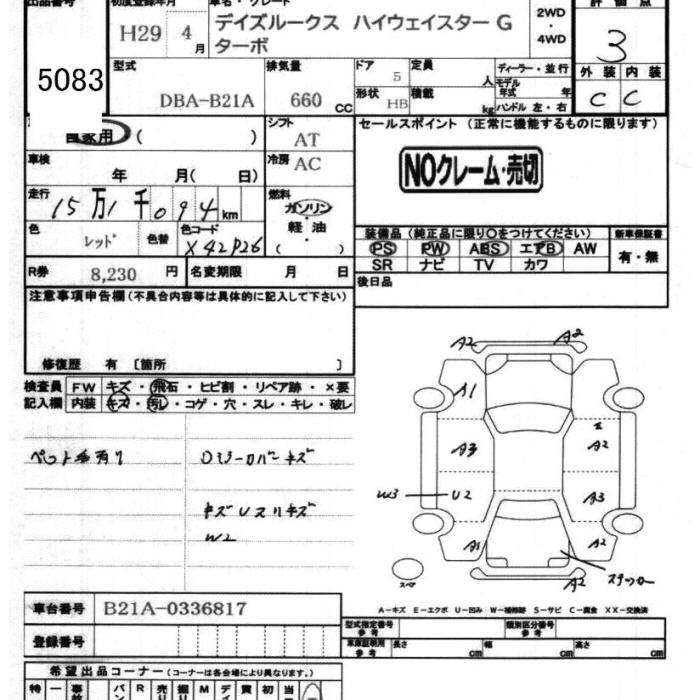 出品番号 初度登録年月 車名・グレード 評価点
5083 H29 4月 デイズルークス ハイウェイスター G ターボ 2WD・4WD 3
型式 排気量 ドア 5 定員 人 ディーラー・並行 外装 内装
DBA-B21A 660 CC 形状 HB 積載 kg モデル年式 年 ハンドル 左・右 C C
自家用 ( ) シフト AT セールスポイント (正常に機能するものに限ります)
車検 年 月( 日) 冷房 AC NOクレーム・売切
走行 15万1千094km 燃料 ガソリン・軽油 ( )
色 レッド 色替 色コード X42P26
装備品 (純正品に限り〇をつけてください) 新車保証書
PS PW ABS エアB AW 有・無
SR ナビ TV カワ
R券 8,230 円 名変期限 月 日 後日品
注意事項申告欄 (不具合内容等は具体的に記入して下さい)
修復歴 有 〔箇所 〕
検査員記入欄 FW キズ・飛石・ヒビ割・リペア跡・×要
内装 キズ・汚レ・コゲ・穴・スレ・キレ・破レ
ペット毛有り
キズ
W2
A2 A2
A1
A3 A2
W3 U2 A3
A1 A2
A2
スペア
A-キズ E-エクボ U-凹み W-補修跡 S-サビ C-腐食 XX-交換済
車台番号 B21A-0336817
登録番号
型式指定番号 参考 類別区分番号 参考
車庫証明用 参考 長さ cm 幅 cm 高さ cm
希望出品コーナー (コーナーは各会場により異なります。)